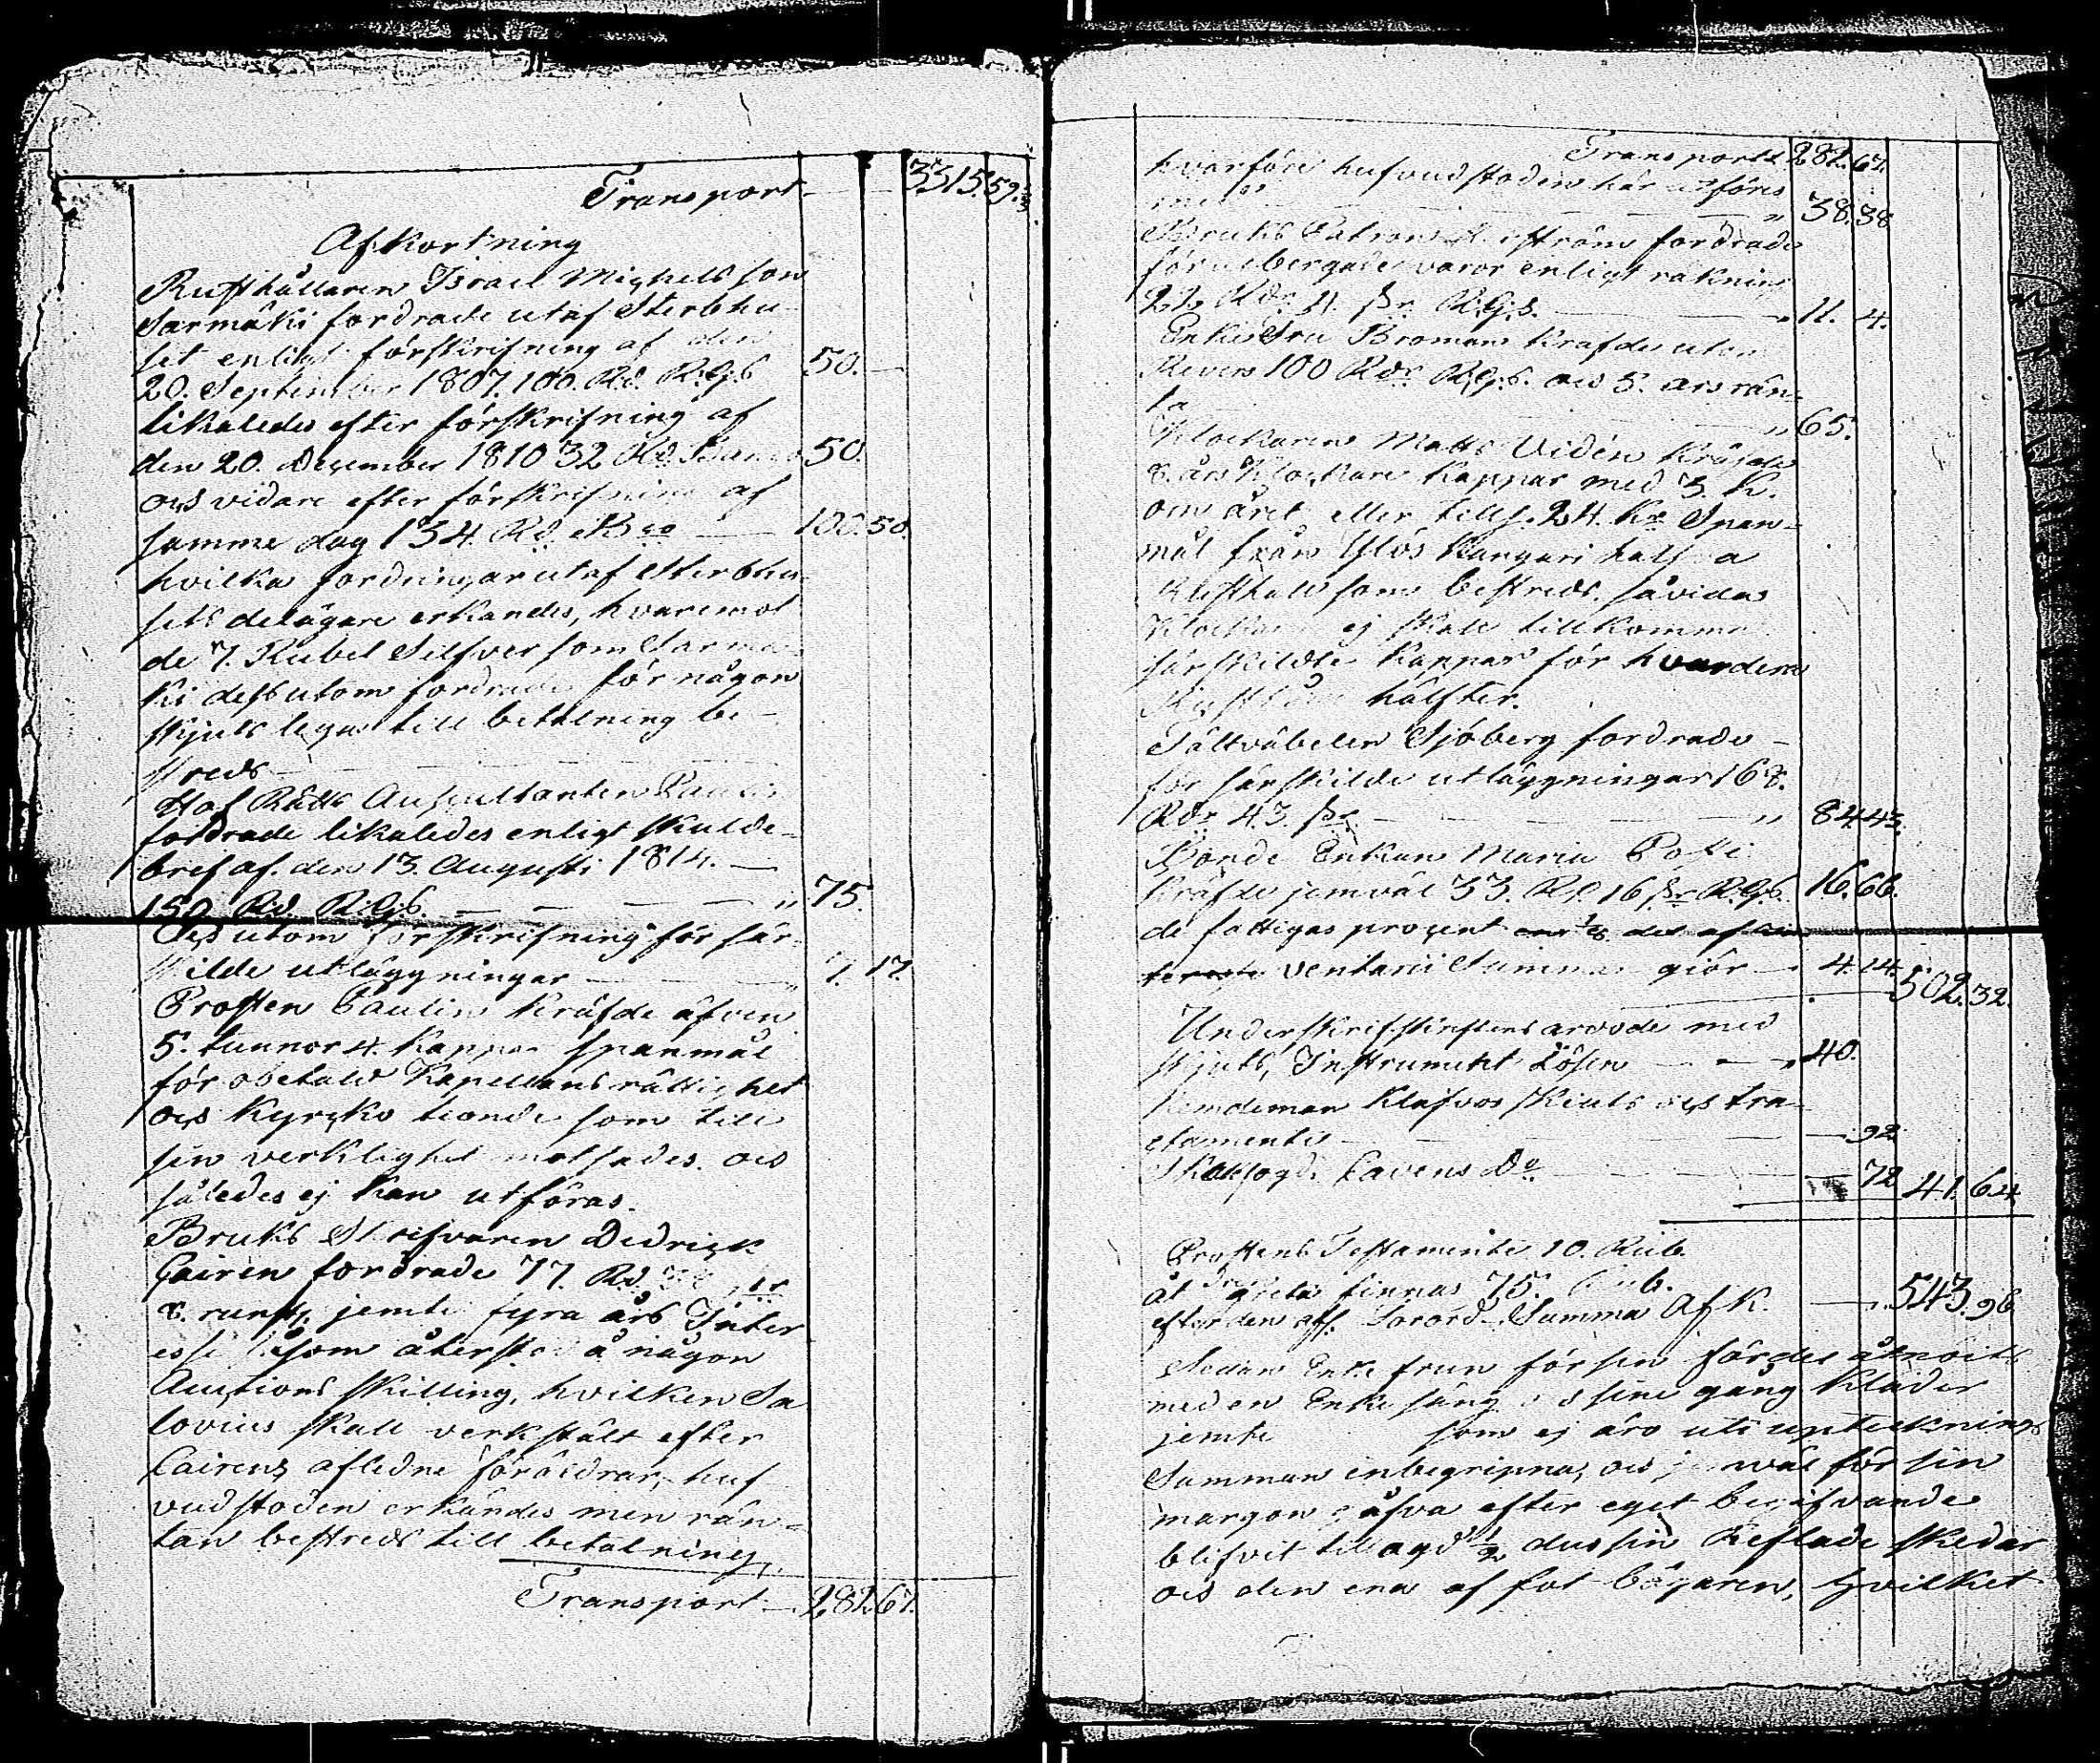 Transport 3315. 59 1/3
Afkortning
Rusthållaren Israel Michelsson
Sarmäki fordrade utaf Sterbhu-
set enligt förskrifning af den
20. September 1807. 100. Rd. RGS 50. —
likaledes efter förskrifning af
den 20. December 1810 32 Rd. Banco 50.
och vidare efter förskrifning af
samme dag 134. Rd. Bco — 100. 50.
hvilka fordringar utaf Sterbhu-
sets delägare erkändes, hvaremot
de 7. Rubel Silfver som Sarmä-
ki dessutom fordrade för någon
skjuts lega till betalning be-
streds —
Hof Rätts Auscultanten Paulin
fordrade likaledes enligt skulde-
bref af den 13. Augusti 1814. —
150 Rd. RGS. — — — " 75.
Dessutom förskrifning för sär-
skilde utläggningar — " 7. 17.
Prosten Paulin kräfde äfven
5. tunnor 4. Kappar spanmål
för obetald Kapellans rättighet
och kyrcko tionde som till
sin verklighet motsades och
således ej kan utföras.
Bruks Skrifvaren Didrick
Cairen fordrade 77. Rd.
8. runst. jemte fyra års Inter
esse såsom återstod å någon
Auctions skilling, hvilken Sa
lovius skall verkstält efter
Cairens afledne föräldrar, huf
vudstoden erkändes men rän-
tan bestreds till betalning,
Transport — 282. 67.
Transport 282. 67.
hvarföre hufvudstoden här utföres
med — " 38. 38
Bruks Patron fordrade
för utbergade varor enligt räkning
22 Rdr 4. sk. RGS. — " 11. 4.
Enke Fru Broman kräfde utan
Revers 100 Rdr RGS. och 5. års rän-
ta — " 65.
Klockaren Matts Widén kräfde
8. års Klockare Kappar med 3. K.
om året eller tills. 24. Kr Span-
mål från Ylös Kangari halfva
Rusthåll som bestreds, såvidas
Klockaren ej skall tillkomma
särskildte Kappar för hvardera
Rusthålls hälfter.
Fältväbelen Sjöberg fordrade —
för särskilde utläggningar 168.
Rdr 43. sk — " 84. 43.
Bonde Enkan Maria
kräfde jemväl 33. Rd. 16 sk RGS. 16. 66.
de fattigas procent
ventarii Summa giör — 4. 14. 502. 32.
Underskrifskriftens arvode med
skjuts, Instrument Lösen — " 40.
Nemdeman Klafvos skiuts och tra-
ctamente — — 92
Skatfogd. Cavens Do — 72 41. 64
Prostens Testamente 10. Rub.
åt finnas 75. Rub.
efter den afl. Summa Af K. — 543. 96
Sedan Enke frun för sin fördel åtnöits
med en Enke säng och sine gång kläder
jemte som ej äro uti upteknings
Summan inbegripna, och jemväl för sin
morgon gåfva efter eget begifvande
blifvit tillagd 1/2 dussin Reflade skedar
och den ena af fot bägaren, hvilket